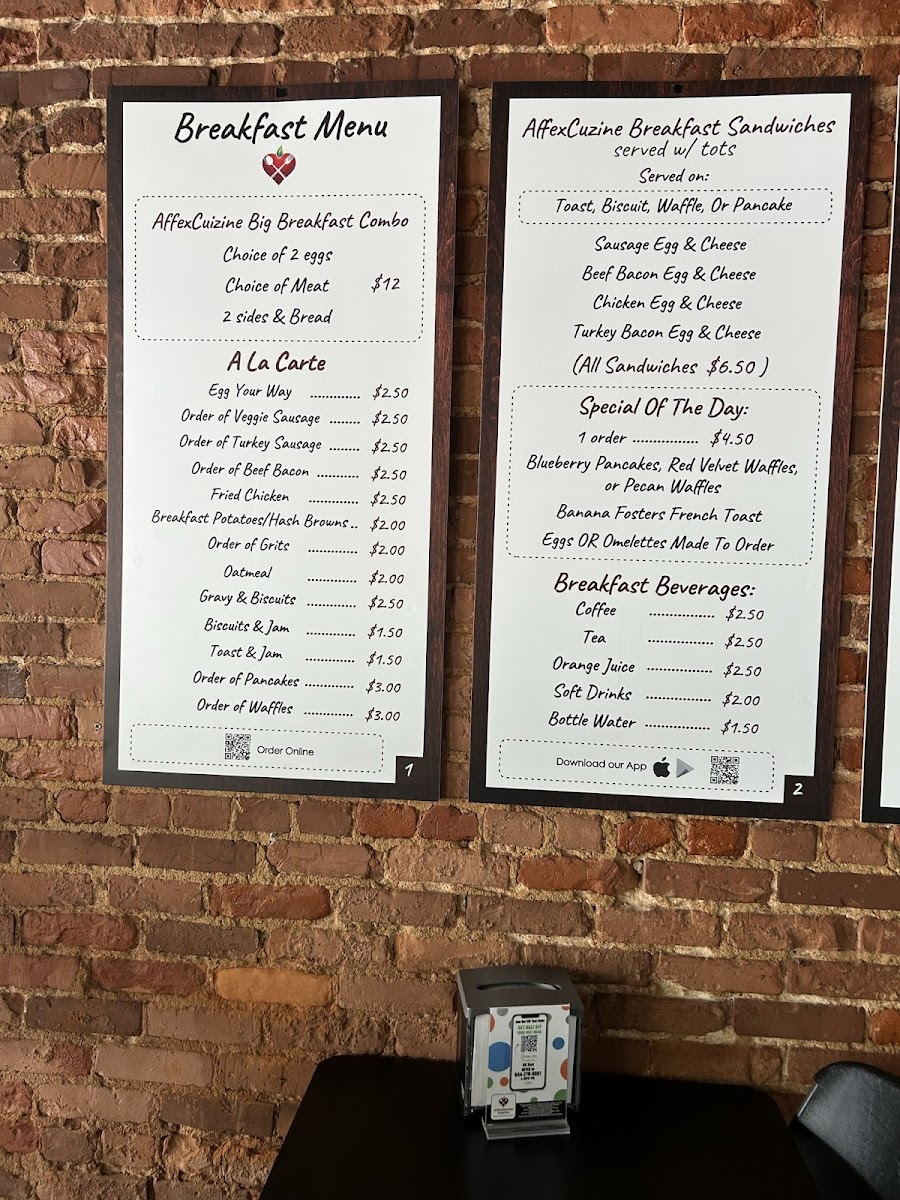 Breakfast Menu
AffexCuizine Big Breakfast Combo
Choice of 2 eggs
Choice of Meat $12
2 sides & Bread
A La Carte
Egg Your Way ............. $2.50
Order of Veggie Sausage ........ $2.50
Order of Turkey Sausage ........ $2.50
Order of Beef Bacon ........... $2.50
Fried Chicken ............. $2.50
Breakfast Potatoes/Hash Browns.. $2.00
Order of Grits ............. $2.00
Oatmeal ............. $2.00
Gravy & Biscuits ............. $2.50
Biscuits & Jam ............. $1.50
Toast & Jam ............. $1.50
Order of Pancakes ............. $3.00
Order of Waffles ............. $3.00
Order Online
1
AffexCuzine Breakfast Sandwiches
served w/ tots
Served on:
Toast, Biscuit, Waffle, Or Pancake
Sausage Egg & Cheese
Beef Bacon Egg & Cheese
Chicken Egg & Cheese
Turkey Bacon Egg & Cheese
(All Sandwiches $6.50 )
Special Of The Day:
1 order ................. $4.50
Blueberry Pancakes, Red Velvet Waffles,
or Pecan Waffles
Banana Fosters French Toast
Eggs OR Omelettes Made To Order
Breakfast Beverages:
Coffee ................. $2.50
Tea ................. $2.50
Orange Juice ................. $2.50
Soft Drinks ................. $2.00
Bottle Water ................. $1.50
Download our App
2
GET HALF OFF
YOUR NEXT MEAL!